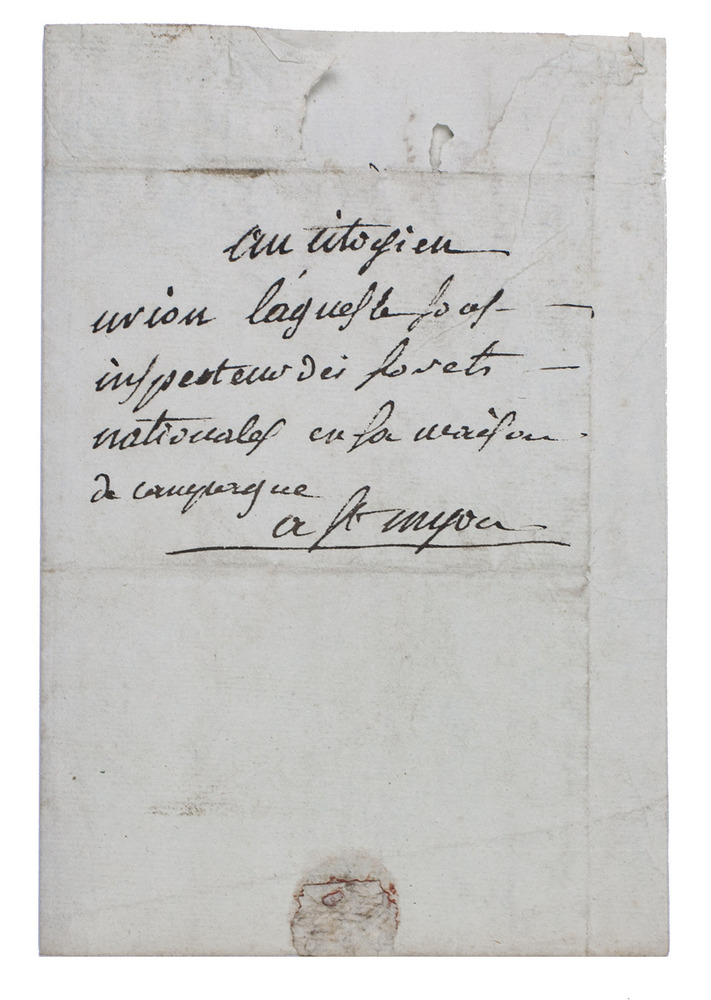 au citoyien
union laguesle sous
inspecteur des forets
nationales en sa maison
de campagne
a St myon